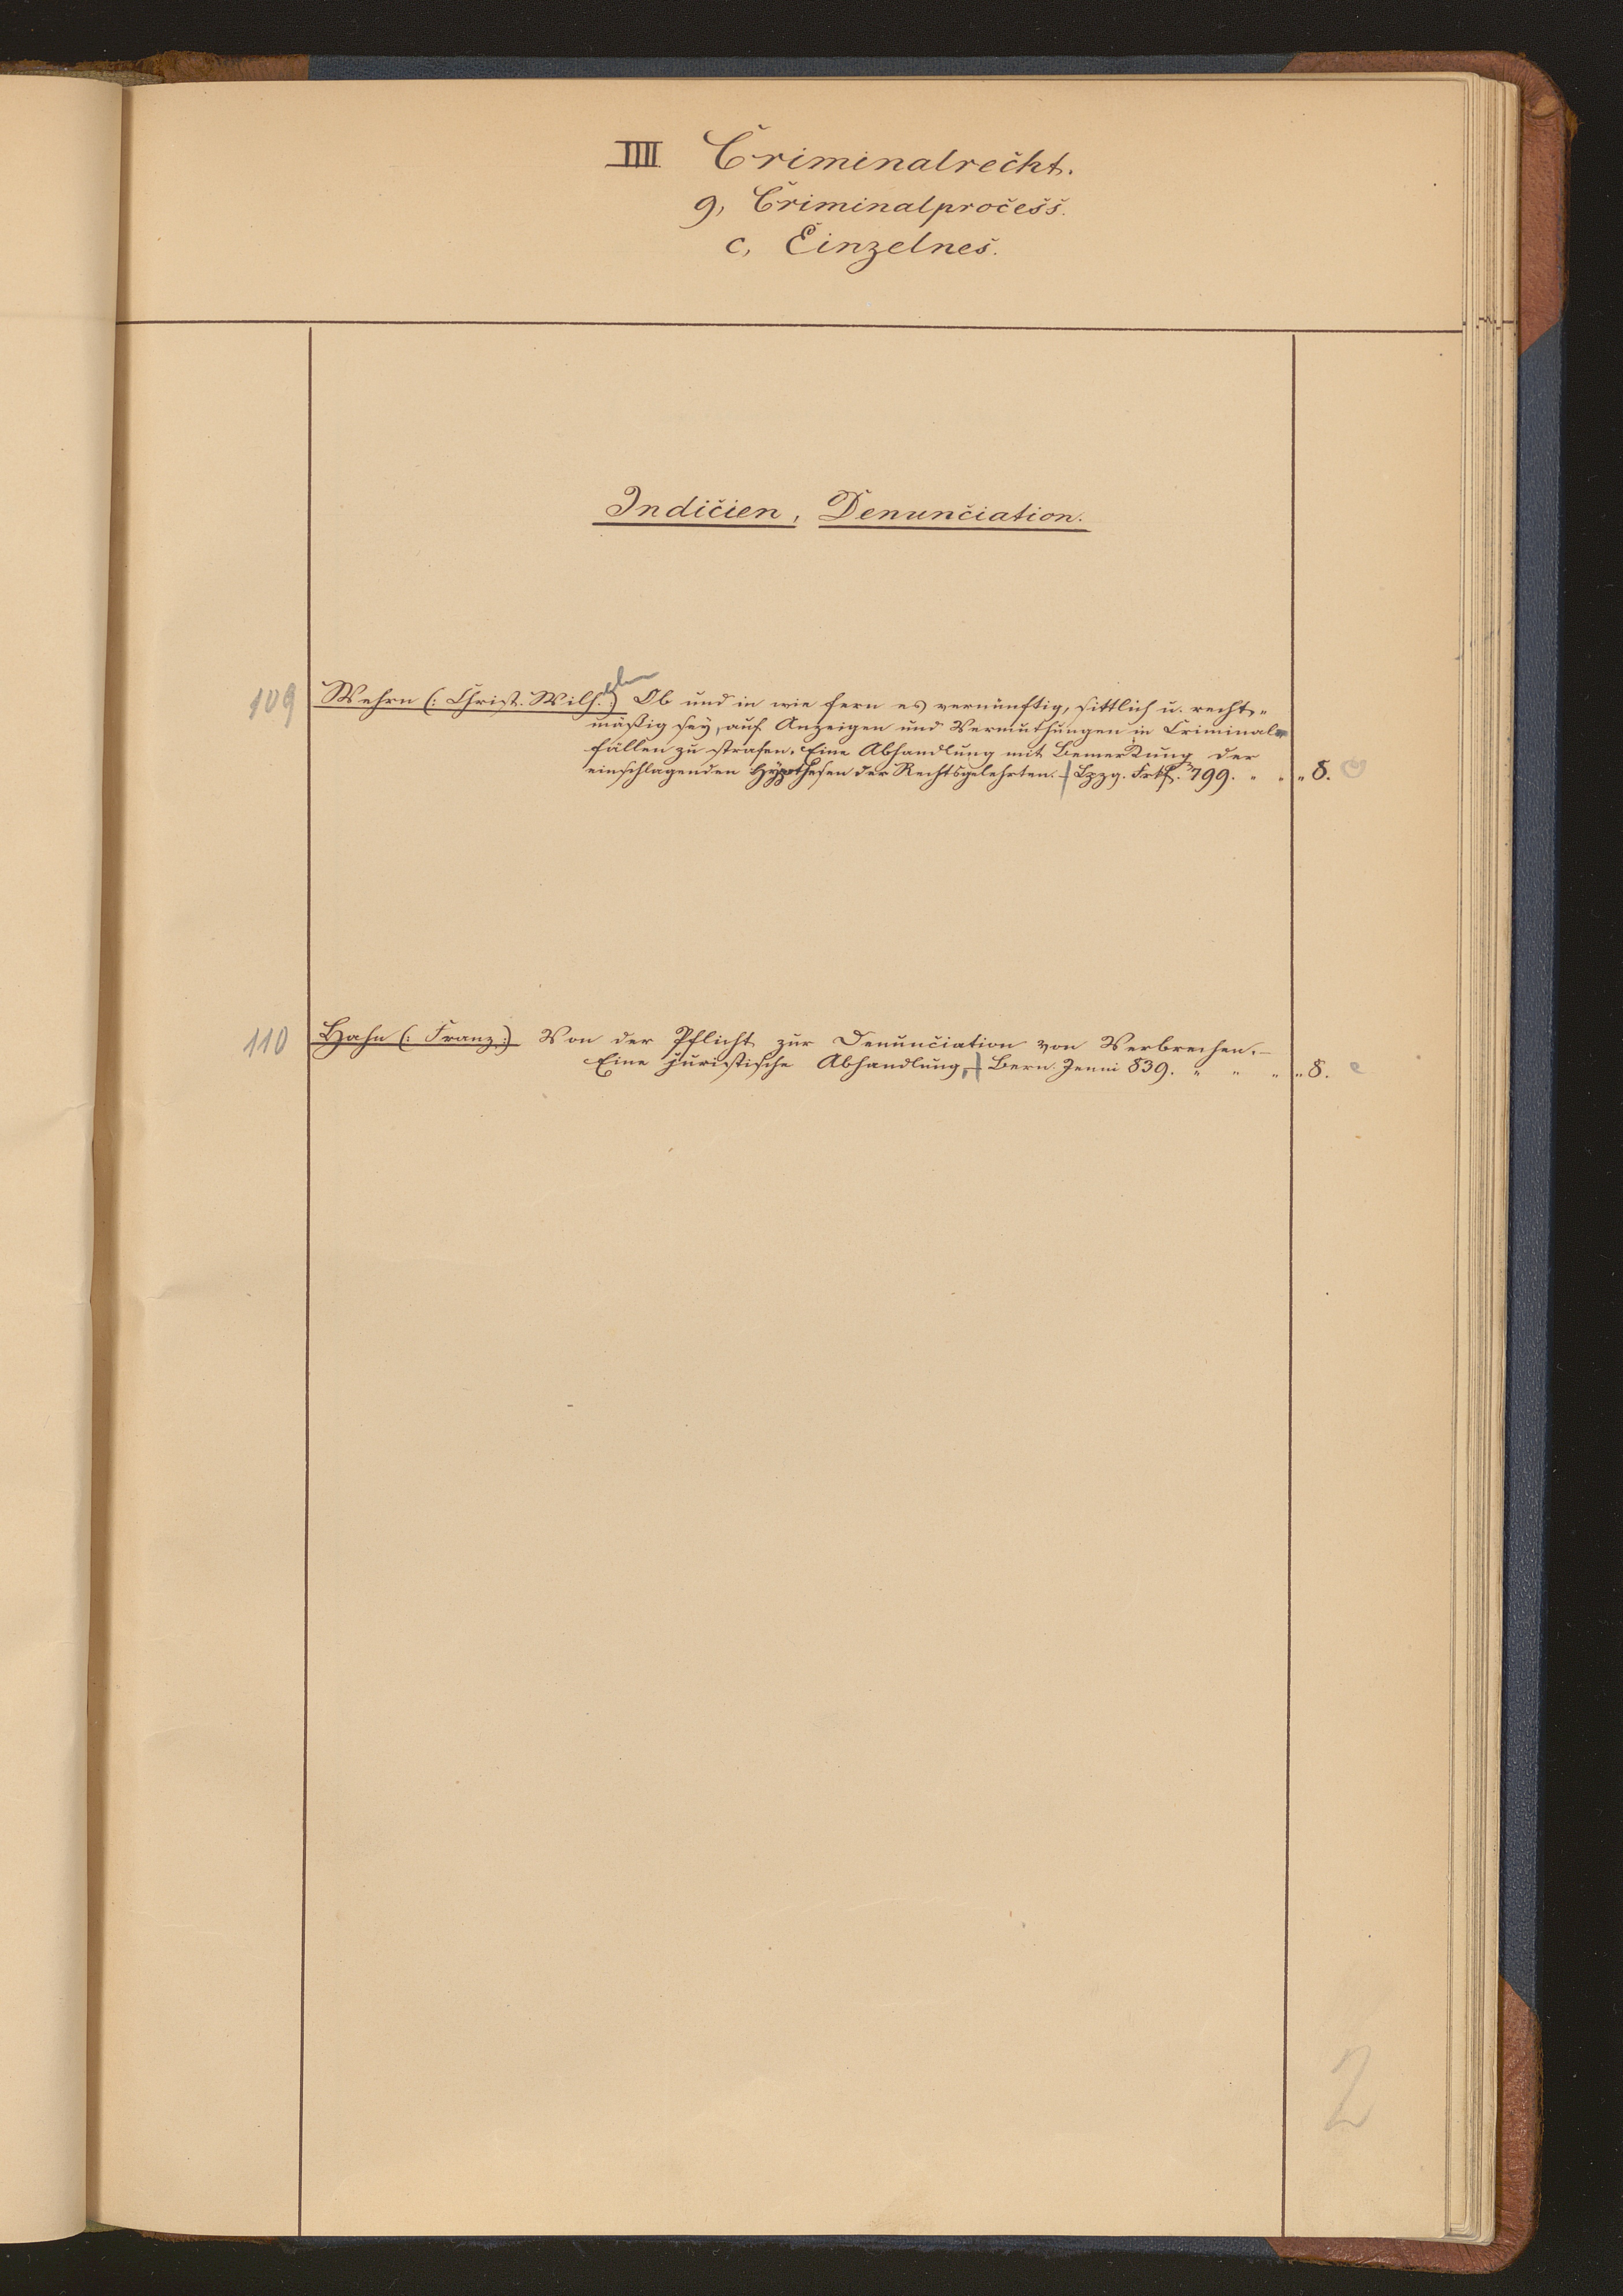 IIII Criminalrecht.
g, Criminalprocess.
c, Einzelnes.
Indicien, Denunciation.
109 Wehrn (: Christ. Wilh. :) Ob und in wie fern es vernünftig, sittlich u. recht„
mäßig sey, auf Anzeigen und Vermuthungen in Criminal„
fällen zu strafen. Eine Abhandlung mit Bemerkung der
einschlagenden Hypothesen der Rechtsgelehrten. Lpzg. 799. „ „ „ 8.
110 Hahn (: Franz :) Von der Pflicht zur Denunciation von Verbrechen. –
Eine juristische Abhandlung, Bern. Jenni 839. „ „ „ „ 8.
2